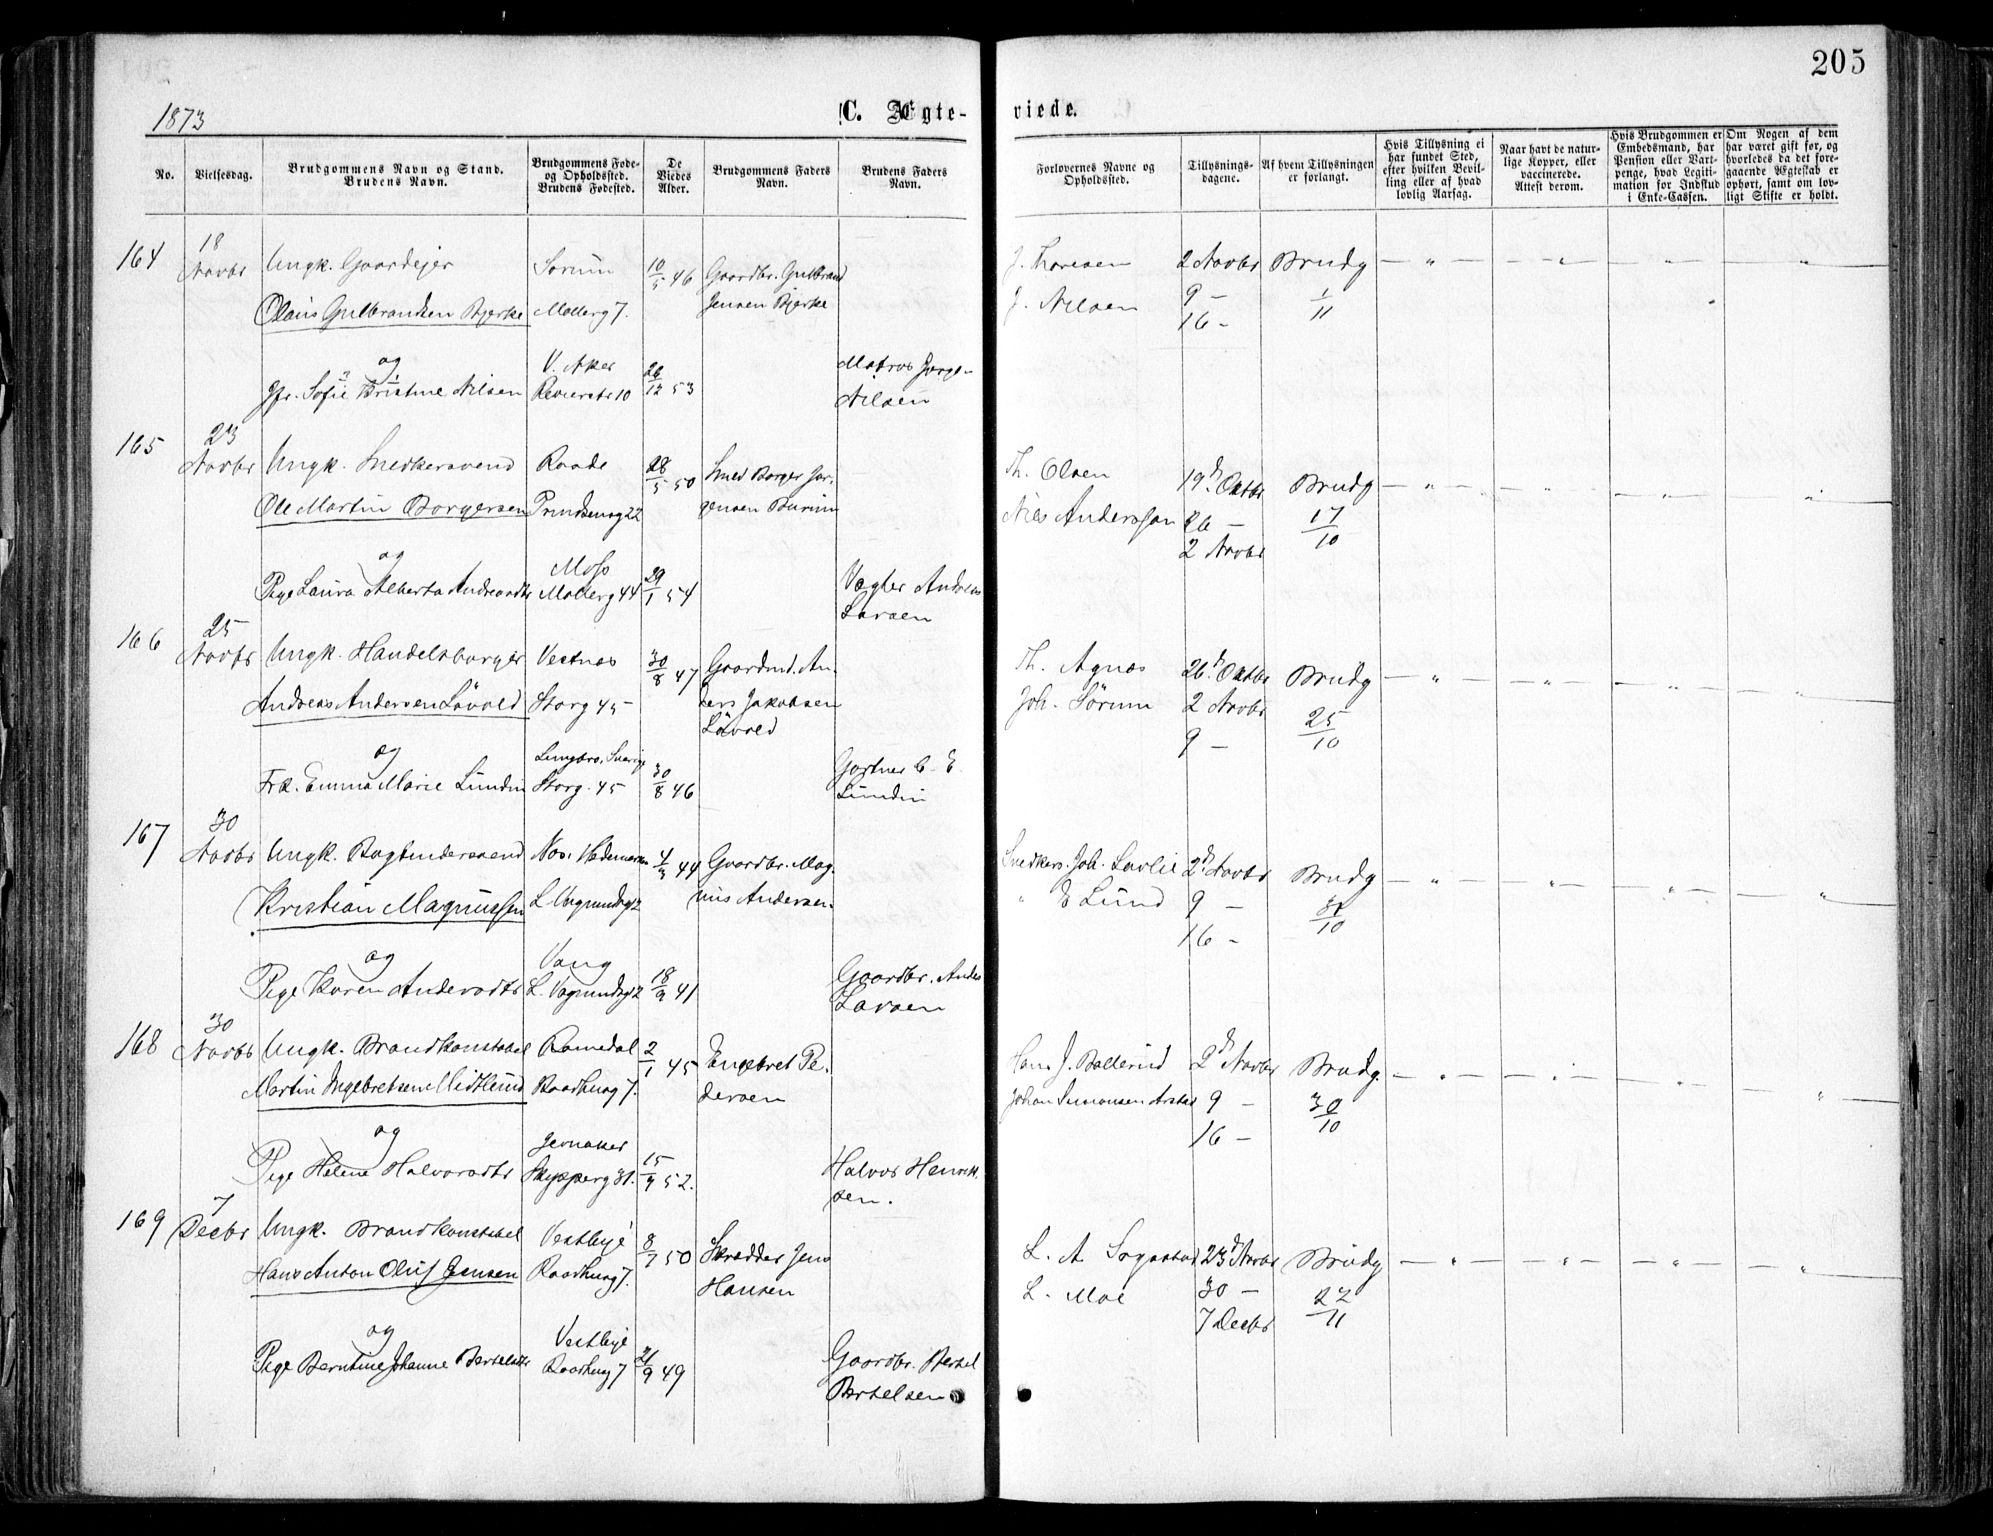 205
1873
C. Ægte-
viede.
No.
Vielsesdag.
Brudgommens Navn og Stand.
Brudens Navn.
Brudgommens Føde-
og Opholdssted.
Brudens Fødested.
De
Viedes
Alder.
Brudgommens Faders
Navn.
Brudens Faders
Navn.
Forlovernes Navne og
Opholdssted.
Tillysnings-
dagene.
Af hvem Tillysningen
er forlangt.
Hvis Tillysning ei
har fundet Sted,
efter hvilken Bevil-
ling eller af hvad
lovlig Aarsag.
Naar havt de natur-
lige Kopper, eller
vaccinerede.
Attest derom.
Hvis Brudgommen er
Embedsmand, har
Pension eller Vart-
penge, hvad Legiti-
mation for Indskud
i Enke-Cassen.
Om Nogen af dem
har været gift før, og
hvorledes da det fore-
gaaende Ægteskab er
ophørt, samt om lov-
ligt Skifte er holdt.
164
18
Novbr
Ungk. Gaardejer
Olaus Gulbrandsen Bjerke
Sorum
Mollerg 7.
10/5 46
Gaardbr. Gulbrand
Jensen Bjerke
J. Thoresen
J. Nilsen
2 Novbr
9 —
16 —
Brudg
1/11
og
Pge. Sofie Kristine Nilsen
V. Aker
Revierstr 10
26/12 53
Matros Jørge-
Nilsen
165
23
Novbr
Ungk. Snedkersvend
Ole Martin Borgersen
Raade
Prindsensg 22
28/5 50
Smed Borger Jør-
gensen Burum
Th. Olsen
Nils Anderssen
19d. Oktbr
26 —
2 Novbr
Brudg
17/10
og
Pige Laura Alberta Andreasdtr
Moss
Mollerg 44
29/1 54
Vægter Andreas
Larsen
166
25
Novbr
Ungk. Handelsborger
Andreas Andersen Lövold
Vestnæs
Storg 45
30/8 47
Gaardmd. An-
ders Jakobsen
Lövold
Th. Agnæs
Joh. Sörum
26d. Oktbr
2 Novbr
9 —
Brudg
25/10
og
Frk. Emma Marie Lundin
Storg. 45
30/8 46
Gartner C. E.
Lundin
167
30
Novbr
Ungk. Bogbindersvend
Kristian Magnussen
Næs. Hedemarken
44
Gaardbr. Mag-
nus Andersen.
Snedkers. Joh. Lovlie
" E Lund
2d Novbr
9 —
16 —
Brudg
og
Pige Karen Andersdtr
Vang
18/9 41
Gaardbr. Anders
Larsen
168
30
Novbr
Ungk. Brandkonstabel
Martin Ingebretsen Midtlund
Romedal
Raadhusg 7.
2/1 45
Engebret Pe-
dersen
Hans J. Ballerud
Johan Simonsen
2d Novbr
9 —
16 —
Brudg.
30/10
og
Pige Helene Halvorsdtr
Jevnaker
Skipperg 31.
15/9 52.
Halvor Henrik-
sen.
169
7
Decbr
Ungk. Brandkonstabel
Hans Anton Oluf Jensen
Vestbye
Raadhusg 7.
8/7 50
Skrædder Jens
Hansen
L. A. Sogstad
L. Moe
23d Novbr
30 —
7 Decbr
Brudg
22/11
og
Pige Berntine Johanne Bertelsdtr
Vestbye
Raadhusg 7
21/9 49
Gaardbr. Bertel
Bertelsen